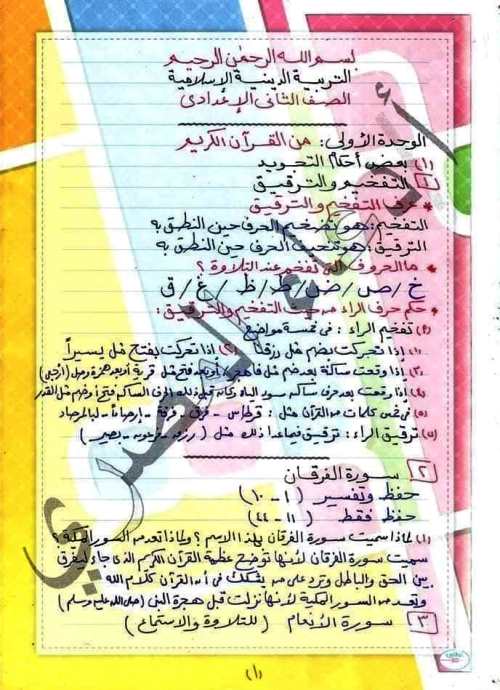 بسم الله الرحمن الرحيم
التربية الدينية الإسلامية
الصف الثانى الإعدادى
الوحدة الأولى: من القرآن الكريم
(١) بعض أحكام التجويد
١ التفخيم والترقيق
* عرف التفخيم والترقيق
التفخيم: هو تضخيم الحرف حين النطق به
الترقيق: هو تنحيف الحرف حين النطق به
* ما الحروف التى تفخم عند التلاوة؟
خ / ص / ض / ط / ظ / غ / ق
* حكم حرف الراء من حيث التفخيم والترقيق:
(أ) تفخيم الراء: فى خمسة مواضع
(١) إذا تحركت بضم مثل رزقنا (٢) إذا تحركت بفتح مثل يسيراً
(٣) إذا وقعت ساكنة بعد ضم مثل أو بعد فتح مثل قرية أو بعد همزة وصل (ارجعى)
(٤) إذا وقعت بعد حرف ساكن سوى الياء وكان قبل ذلك الحرف الساكن فتح أو ضم مثل القدر
(٥) فى خمس كلمات من القرآن مثل: قرطاس - فرق - فرقة - إرصاداً - لبالمرصاد
(ب) ترقيق الراء: ترقيق فيما عدا ذلك مثل (رزق - فرعون - بصير)
٢ سورة الفرقان
حفظ وتفسير (١ - ١٠)
حفظ فقط (١١ - ٤٤)
(١) لماذا سميت سورة الفرقان بهذا الاسم؟ ولماذا تعد من السور المكية؟
سميت سورة الفرقان لأنها توضح عظمة القرآن الكريم الذى جاء ليفرق
بين الحق والباطل وترد على من يشكك فى أن القرآن كلام الله
وتعد من السور المكية لأنها نزلت قبل هجرة النبى (صلى الله عليه وسلم)
٣ سورة الأنعام (للتلاوة والاستماع)
(١)